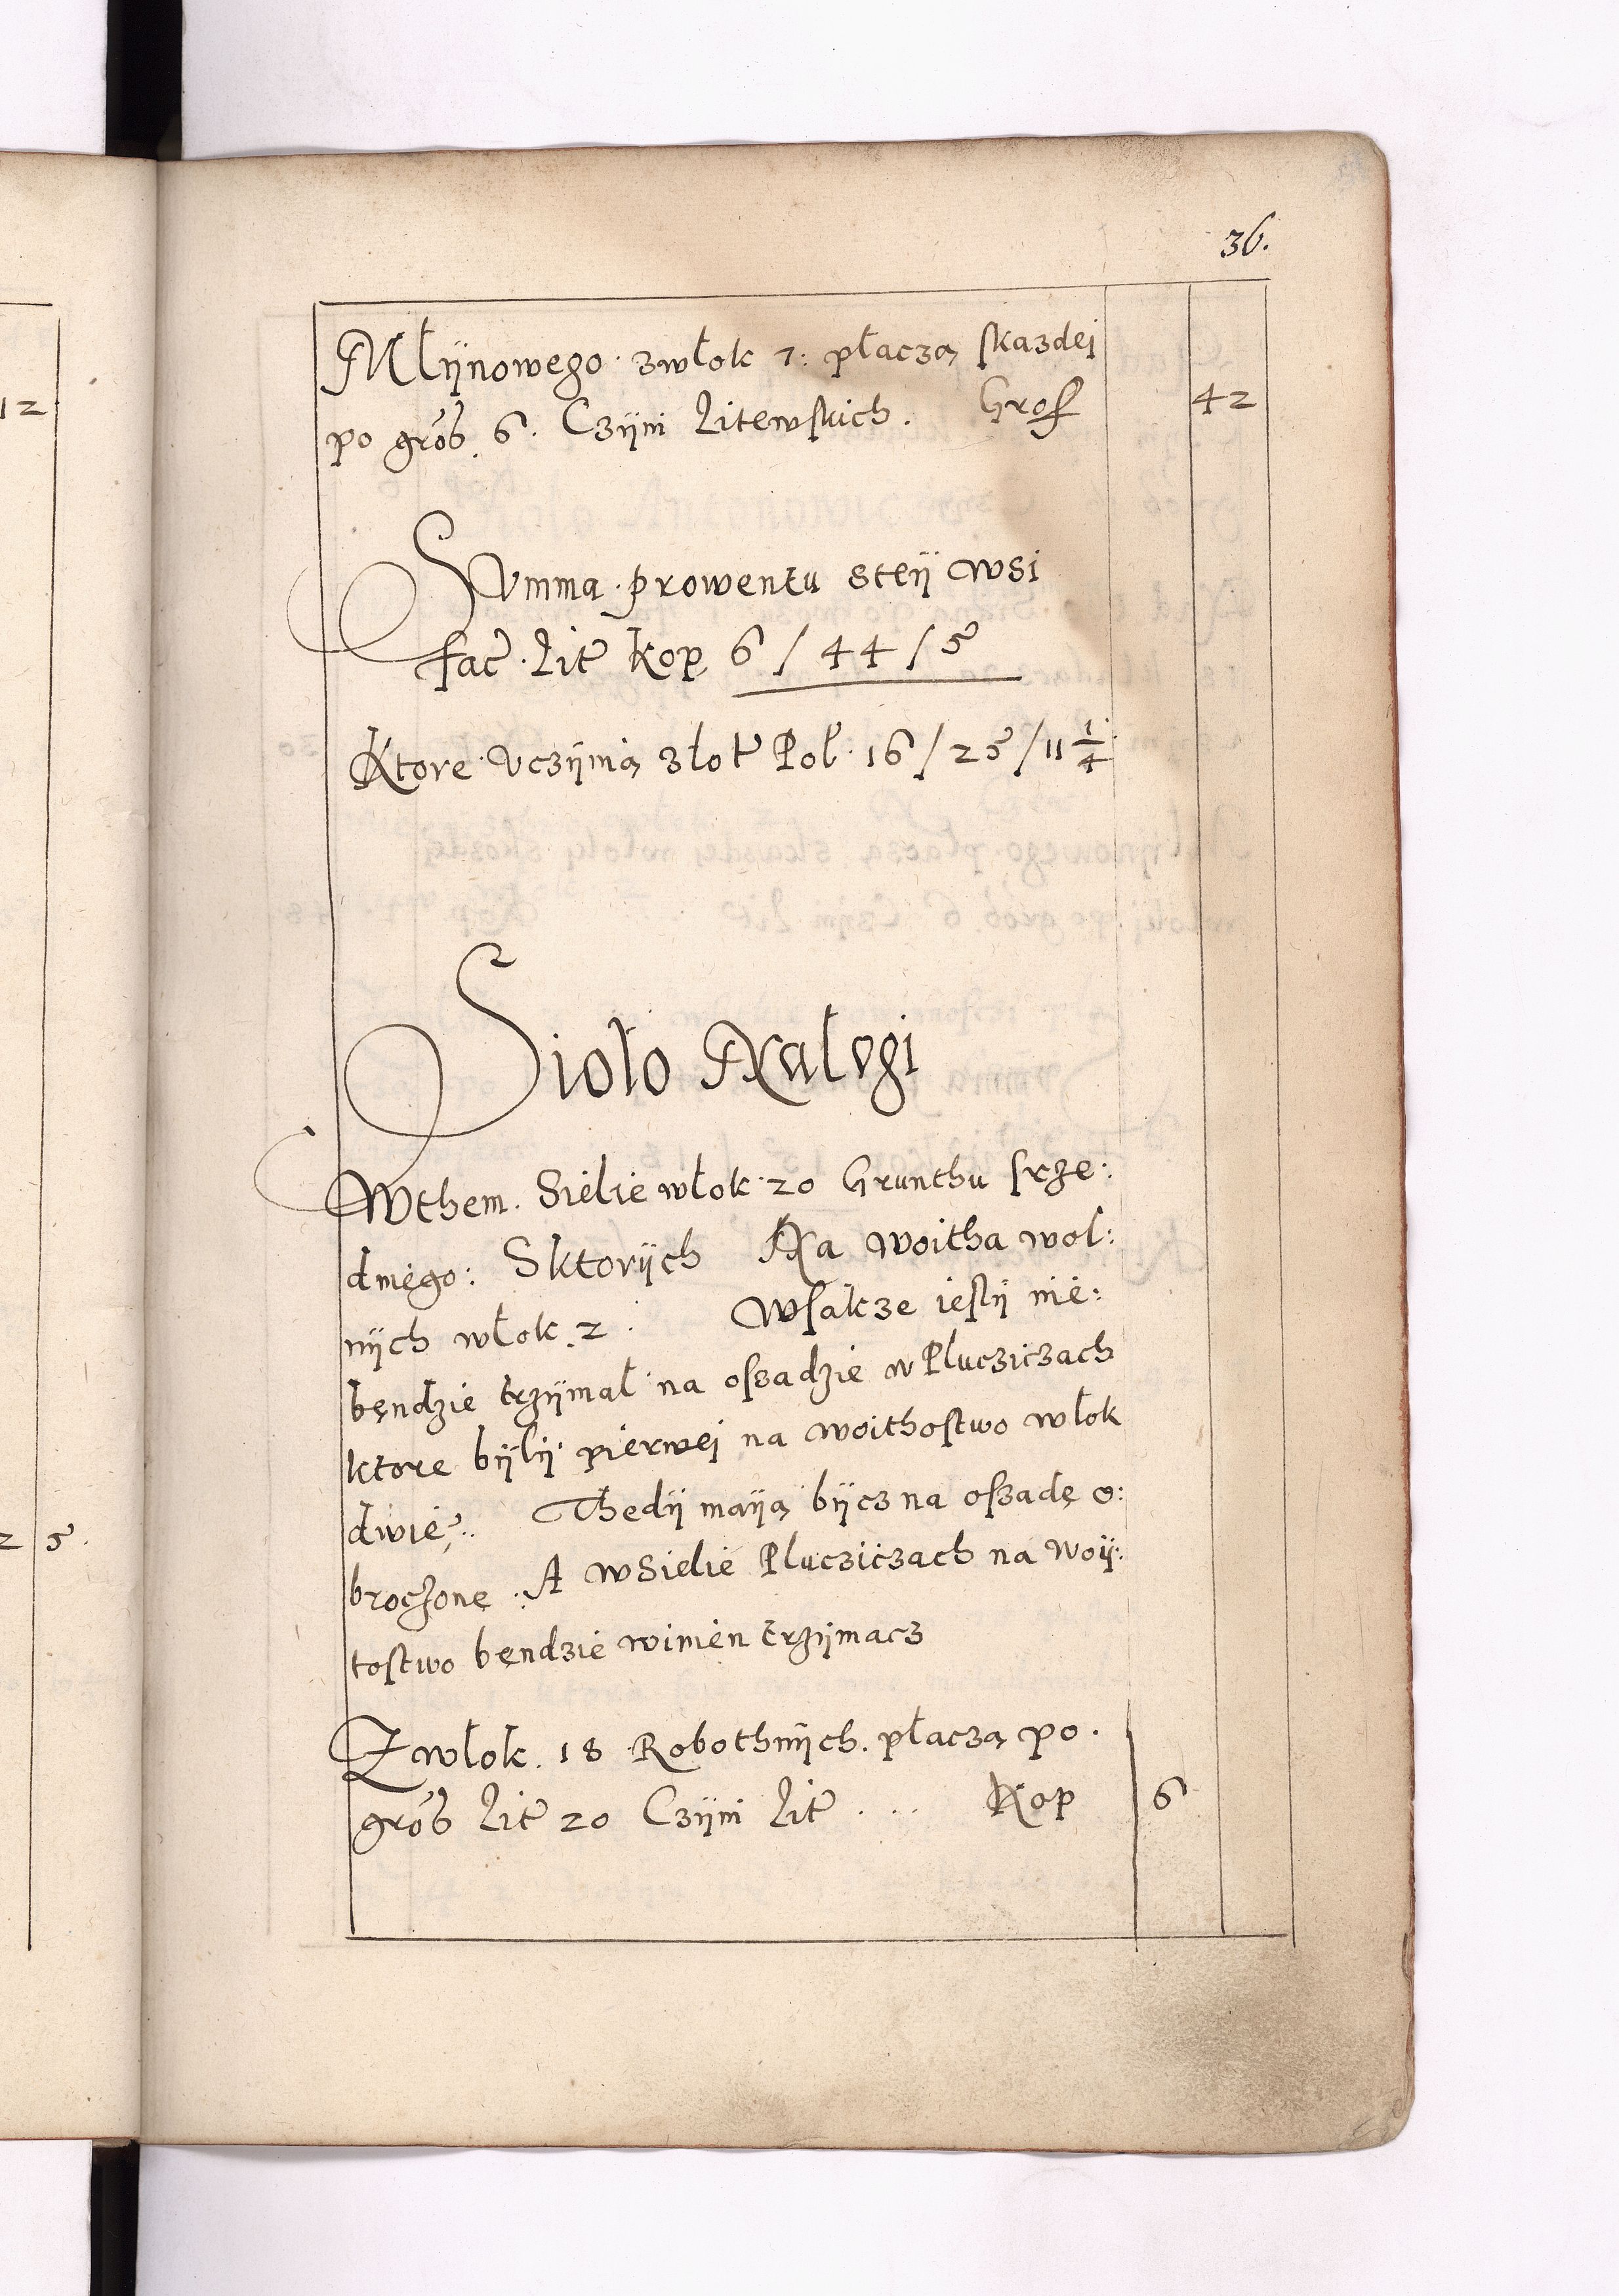 36.
Młÿnowego zwłok 7: płaczą skazdei
po grób. 6. Czÿni Litewskich. Gros 42
Summa prowentu steÿ wsi
fac Lit kop 6 / 44 / 5
Ktore vczÿnią złot Pol 16 / 25 / 11 1/4
12
Sioło
Wthem Sielie włok 20 Grunthu srze:
dniego: Sktorÿch Na woitha wol:
nÿch włok 2 Wsakze iestÿ nie:
będzie trzÿmał na oszadzie w Pluczÿczach
ktore bÿlÿ pierwei na woithostwo włok
dwie. Thedÿ maÿą bÿcz na oszadę o:
broczone A wSielie Pluczÿczach na woÿ:
tostwo bendzie winien trzÿmacz
Z włok 18 Robothnÿch płaczą po
grób Lit 20 Czÿni Lit Kop 6
2 5